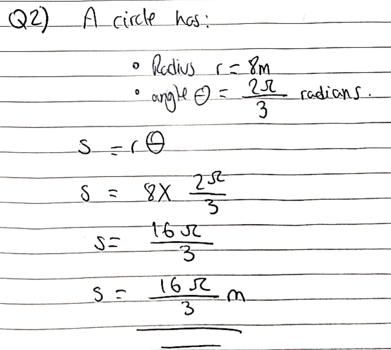 Q2) A circle has:
• Radius r = 8m
• angle θ = 2π/3 radians.
S = rθ
S = 8 × 2π/3
S = 16π/3
S = 16π/3 m